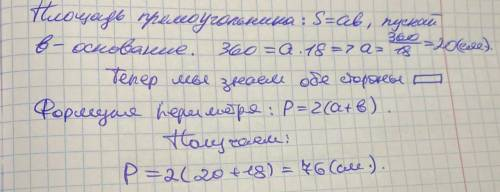 Площадь прямоугольника: S=ab, пускай
b - основание. 360 = a · 18 => a = 360/18 = 20(см).
Тепер мы знаем обе стороны ▭
Формула периметра: P = 2(a+b).
Получаем:
P = 2(20+18) = 76(см.).